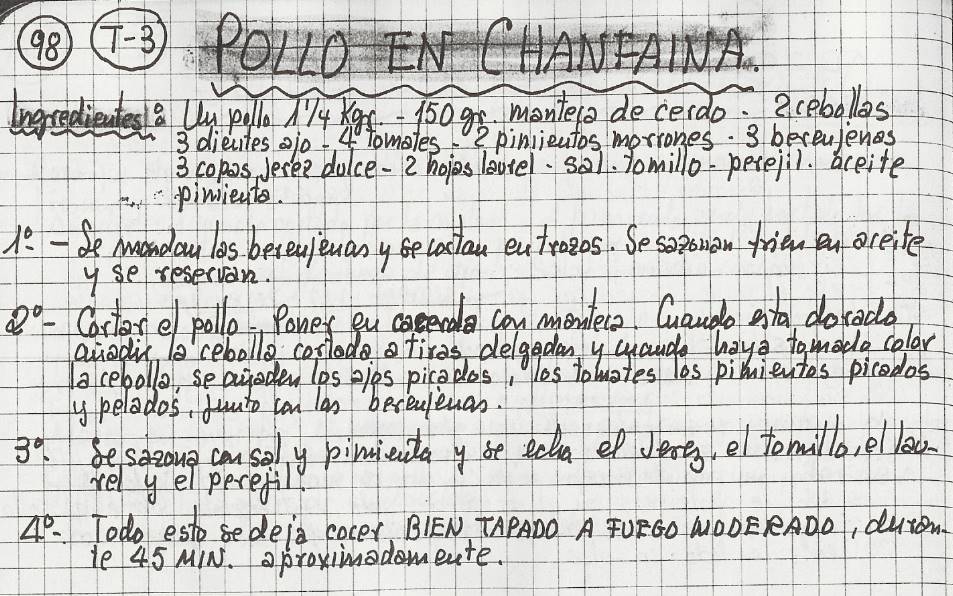 98 T-3 POLLO EN CHANFAINA.
Ingredientes: Un pollo 1 1/4 Kgr. - 150 gr. manteca de cerdo - 2 cebollas
3 dientes ajo - 4 tomates - 2 pimientos morrones - 3 berenjenas
3 copas Jerez dulce - 2 hojas laurel - sal - Tomillo - perejil - aceite
pimienta.
1º - Se mondan las berenjenas y se cortan en trozos. Se sazonan frien en aceite
y se reservan.
2º - Cortar el pollo - Poner en cacerola con manteca. Cuando esta dorado
añadir la cebolla cortada a tiras delgadas y cuando haya tomado color
la cebolla, se añaden los ajos picados, los tomates los pimientos picados
y pelados, junto con las berenjenas.
3º. Se sazona con sal y pimienta y se echa el Jerez, el tomillo, el lau-
rel y el perejil.
4º-. Todo esto se deja cocer BIEN TAPADO A FUEGO MODERADO, duran-
te 45 MIN. aproximadamente.